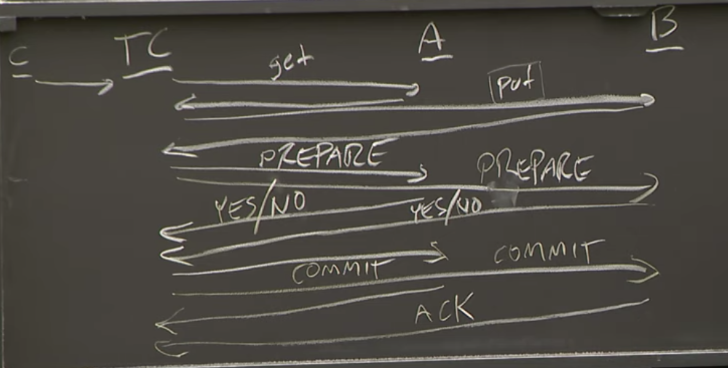 C TC A B
get put
PREPARE PREPARE
YES/NO YES/NO
COMMIT COMMIT
ACK